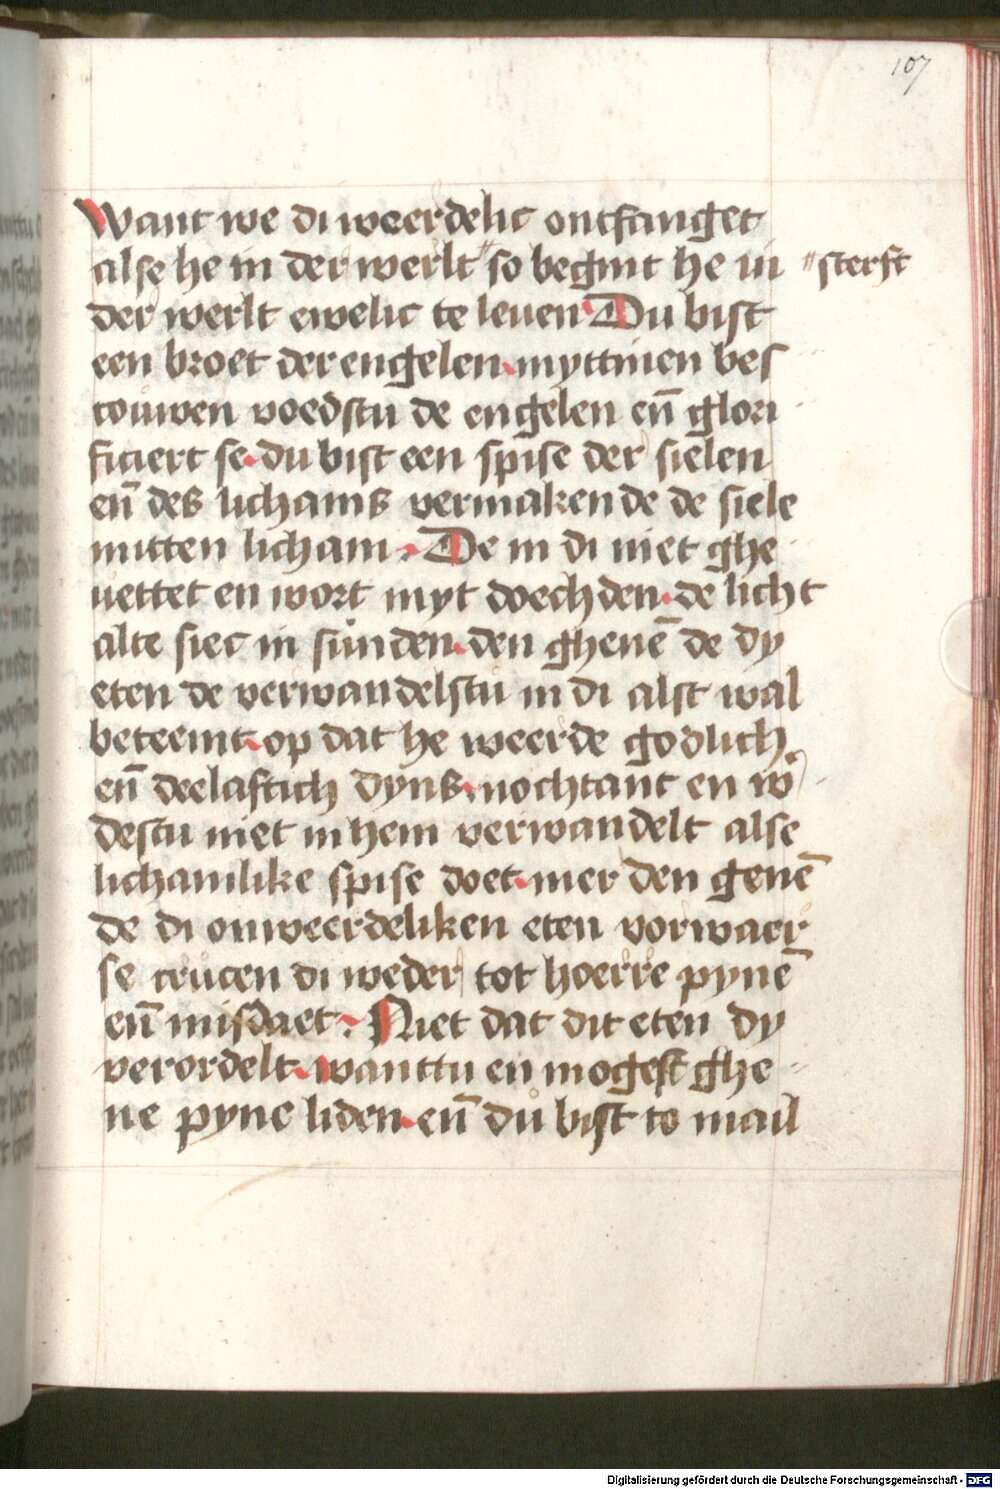 107
Want we di weerdelic ontfanget
alse he in der werlt " so begint he in " sterft
der werlt ewelic te leuen Du bist
een broet der engelen. myttinen bes
couwen voedstu de engelen en̄ glori
ficiert se. du bist een spise der sielen
en̄ des lichams vermakende de siele
mitten licham. De in di niet ghe
uettet en wort myt doechden. de licht
alte siec in sunden. den ghenē de dy
eten de verwandelstu in di alst wal
beteemt. op dat he weerde godlich
en̄ deelaftich dyns. nochtant en w
destu niet in hem verwandelt alse
lichamlike spise doet. mer den genē
de di onweerdeliken eten vorwaer
se crucen di weder tot hoerre pynē
en̄ misdaet. Niet dat dit eten dy
verordelt. wanttu en mogest ghe
ne pyne liden. en̄ du bist to mail
Digitalisierung gefördert durch die Deutsche Forschungsgemeinschaft - DFG